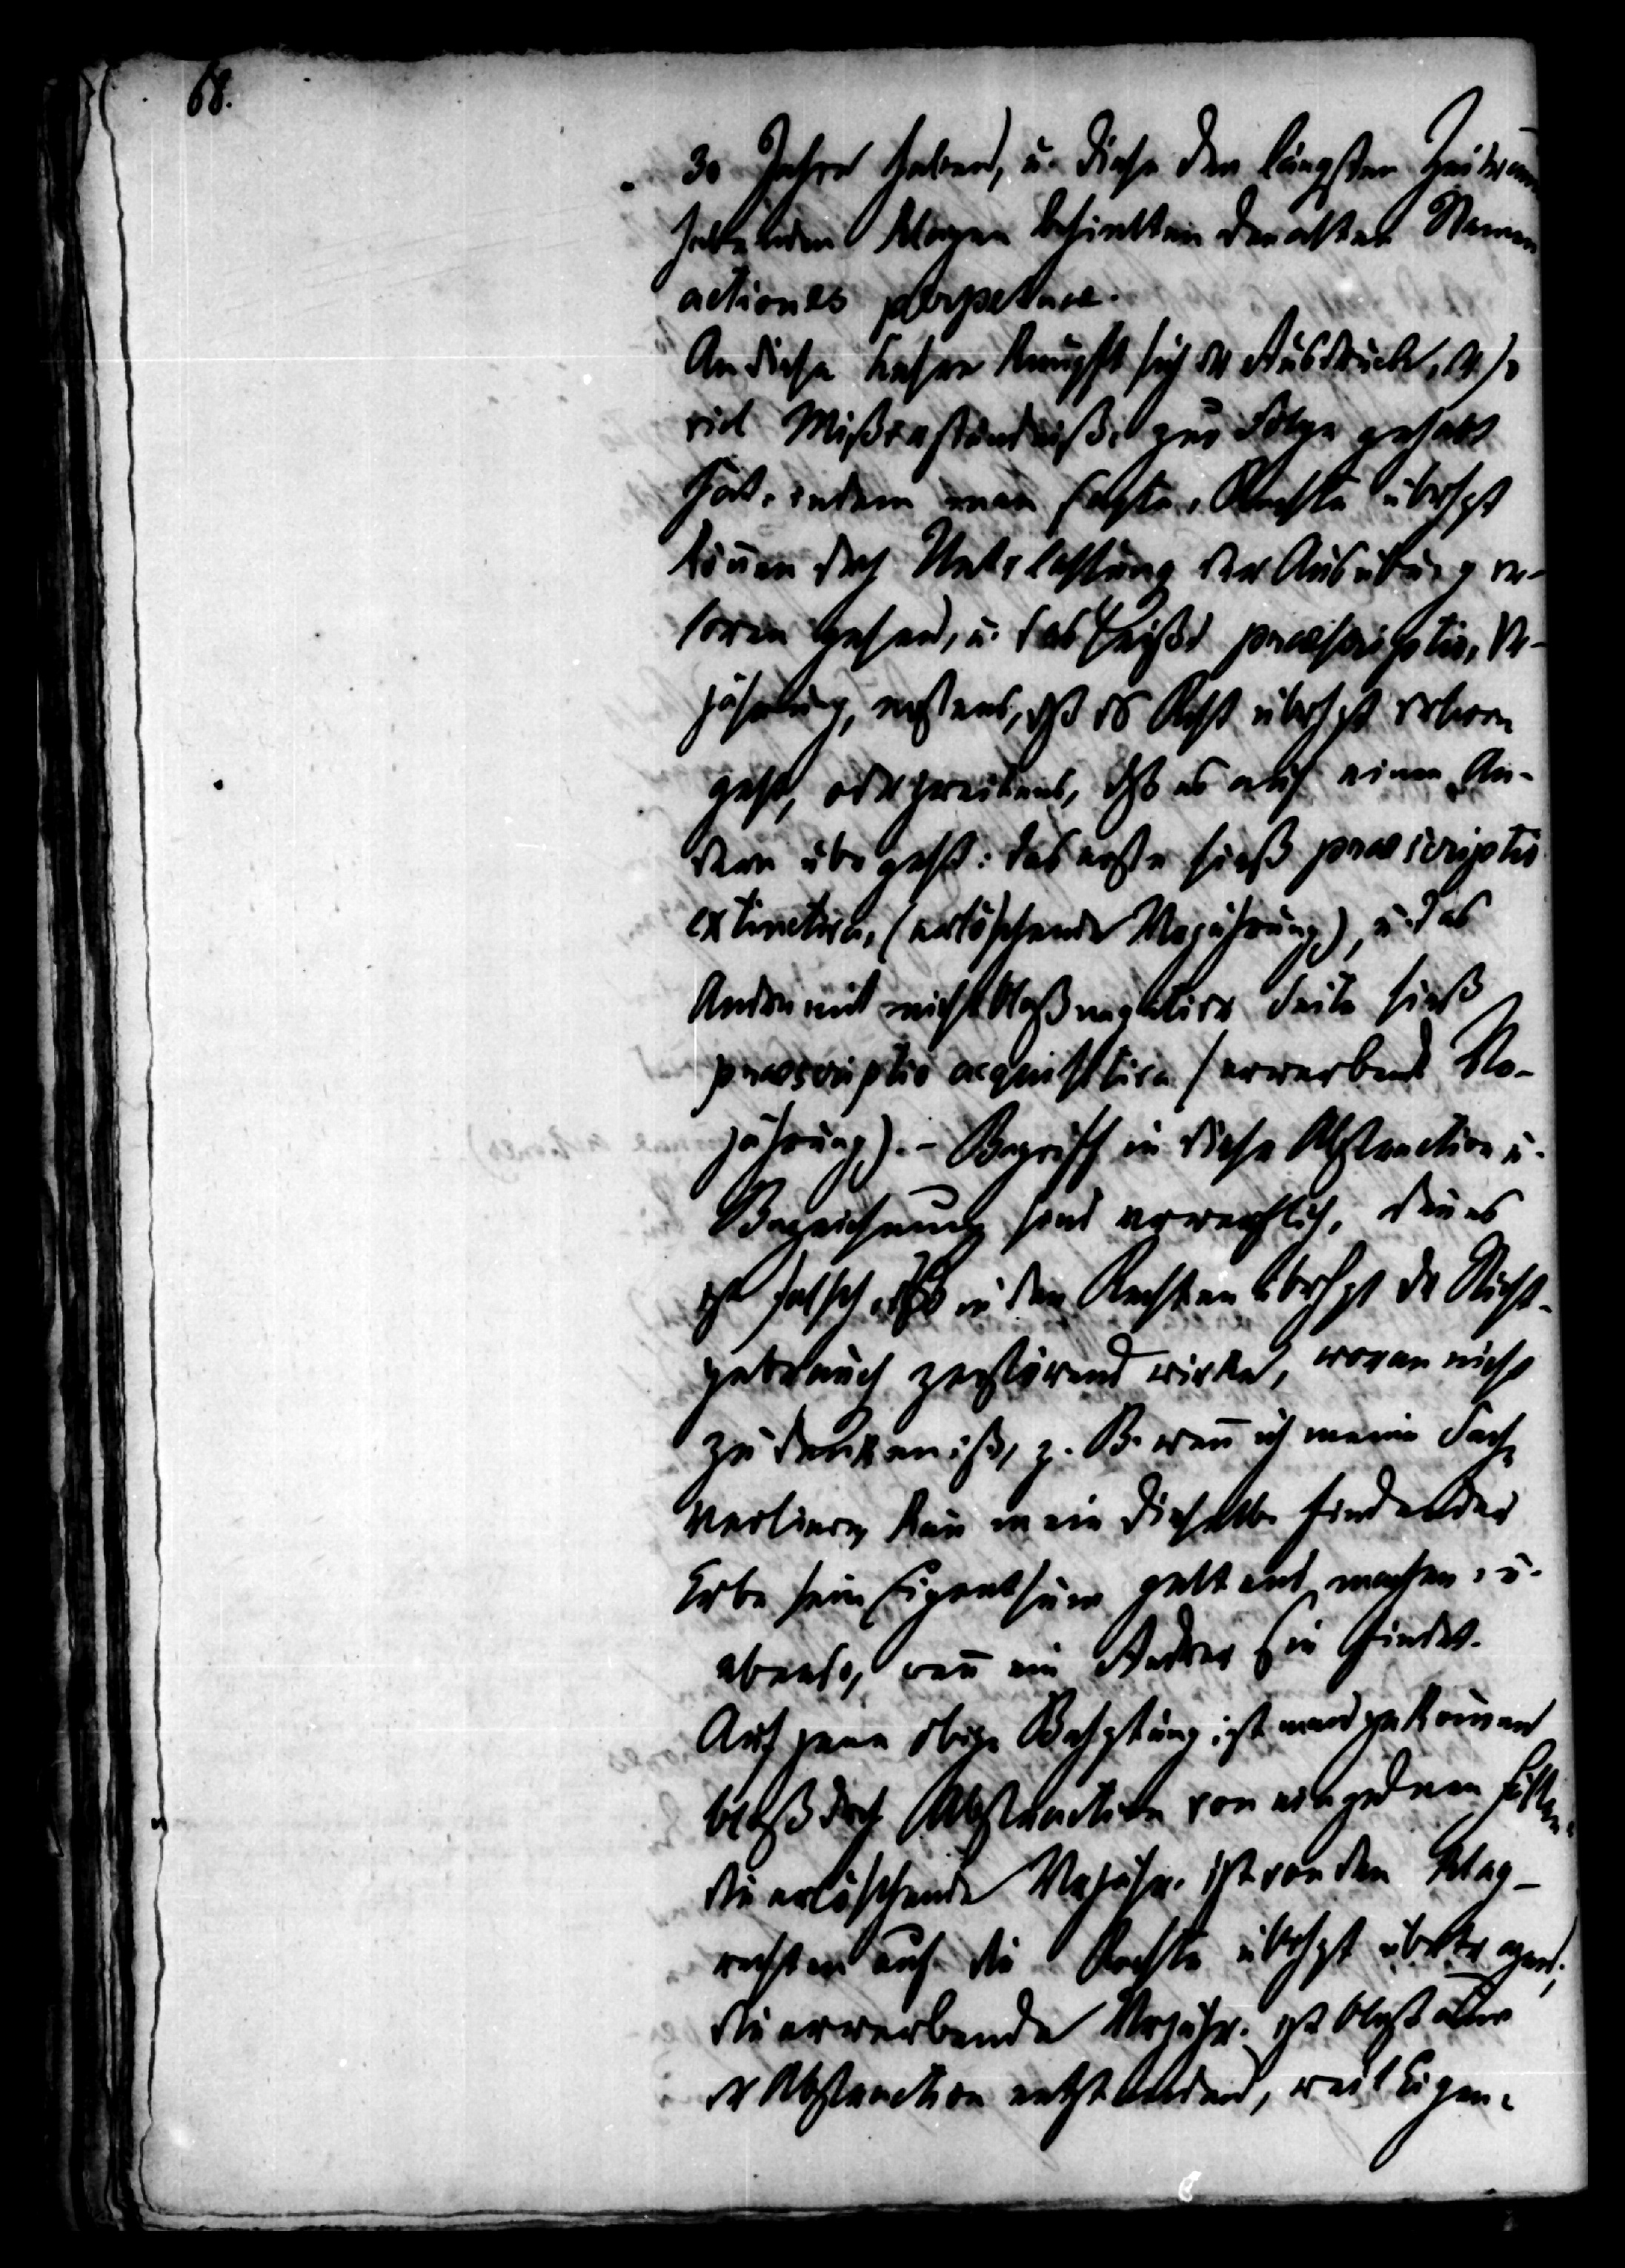 68.
30 Jahre haben, u. diese den längsten Zeitraum
habenden Klagen behielten den alten Namen
actiones perpetuae.
An diese Lehre knüpft sich der Ausdruck, der so
viel Mißverständniße zur Folge gehabt
hat, indem man sagte, Rechte überhpt
können drch Unterlassung der Ausübung ver-
loren gehen, u. das heißt praescriptio, Ver-
jährung, erstens, dß ds Recht überhpt verloren
geht, oder zweitens, dß es auf einen An-
dern übergeht: das erste hieß praescriptio
extinctiva, (erlöschende Verjährung), u. das
Andere mit nicht bloß negativer Seite hieß
praescriptio acquisitiva (erwerbende Ver-
jährung). - Begriff in dieser Abstraction u.
Bezeichnung sind verwerflich, denn es
ist falsch, dß in den Rechten überhpt der Nicht-
gebrauch zerstörend wirke, woran nicht
zu denken ist, z. B. wenn ich meine Sache
verliere, kann mein dieselbe findender
Erbe sein Eigenthum geltend machen, u.
ebenso, wenn ein Andrer sie findet.
Auf jene obige Behptung ist man gekommen
bloß drch Abstraction von einzelnen Fällen:
die erlöschende Verjähr. ist von den Klag-
rechten auf die Rechte überhpt übertragen;
die erwerbende Verjähr. ist bloß aus
der Abstraction entstanden, weil Eigen-